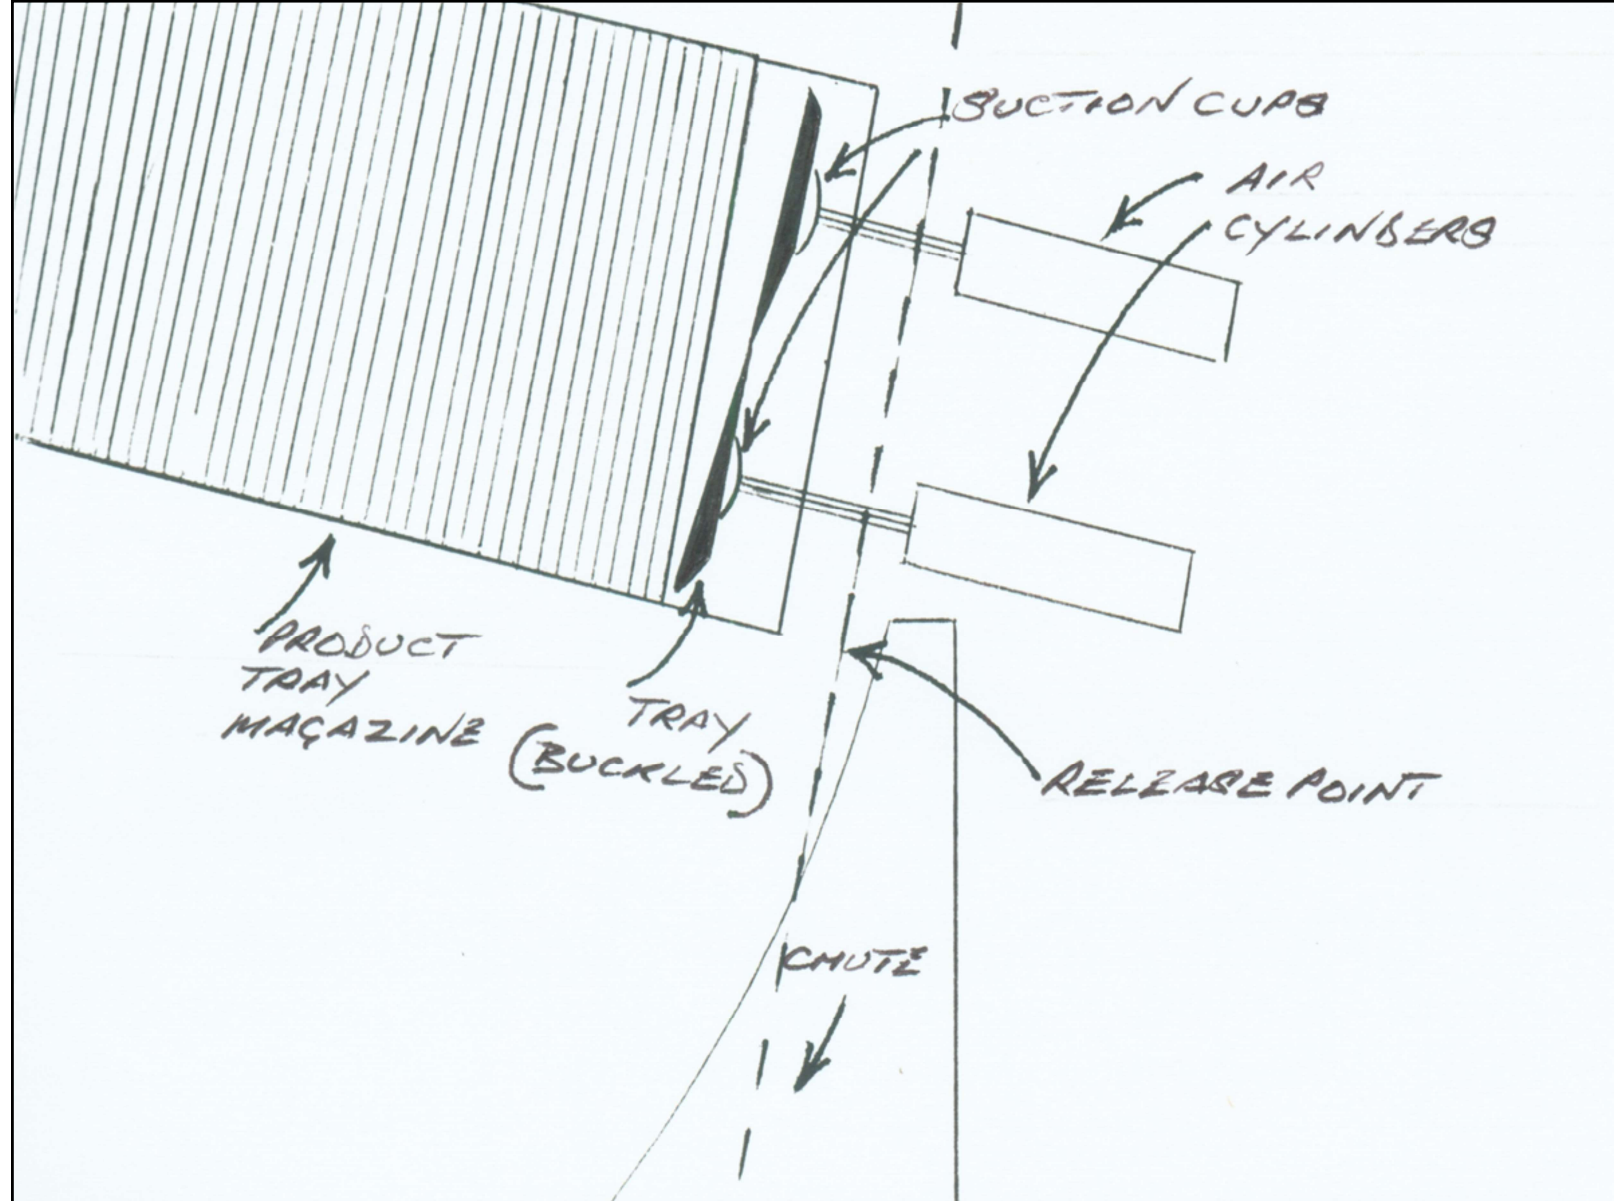 SUCTION CUPS
AIR
CYLINDERS
PRODUCT
TRAY
MAGAZINE
TRAY
(BUCKLED)
RELEASE POINT
CHUTE